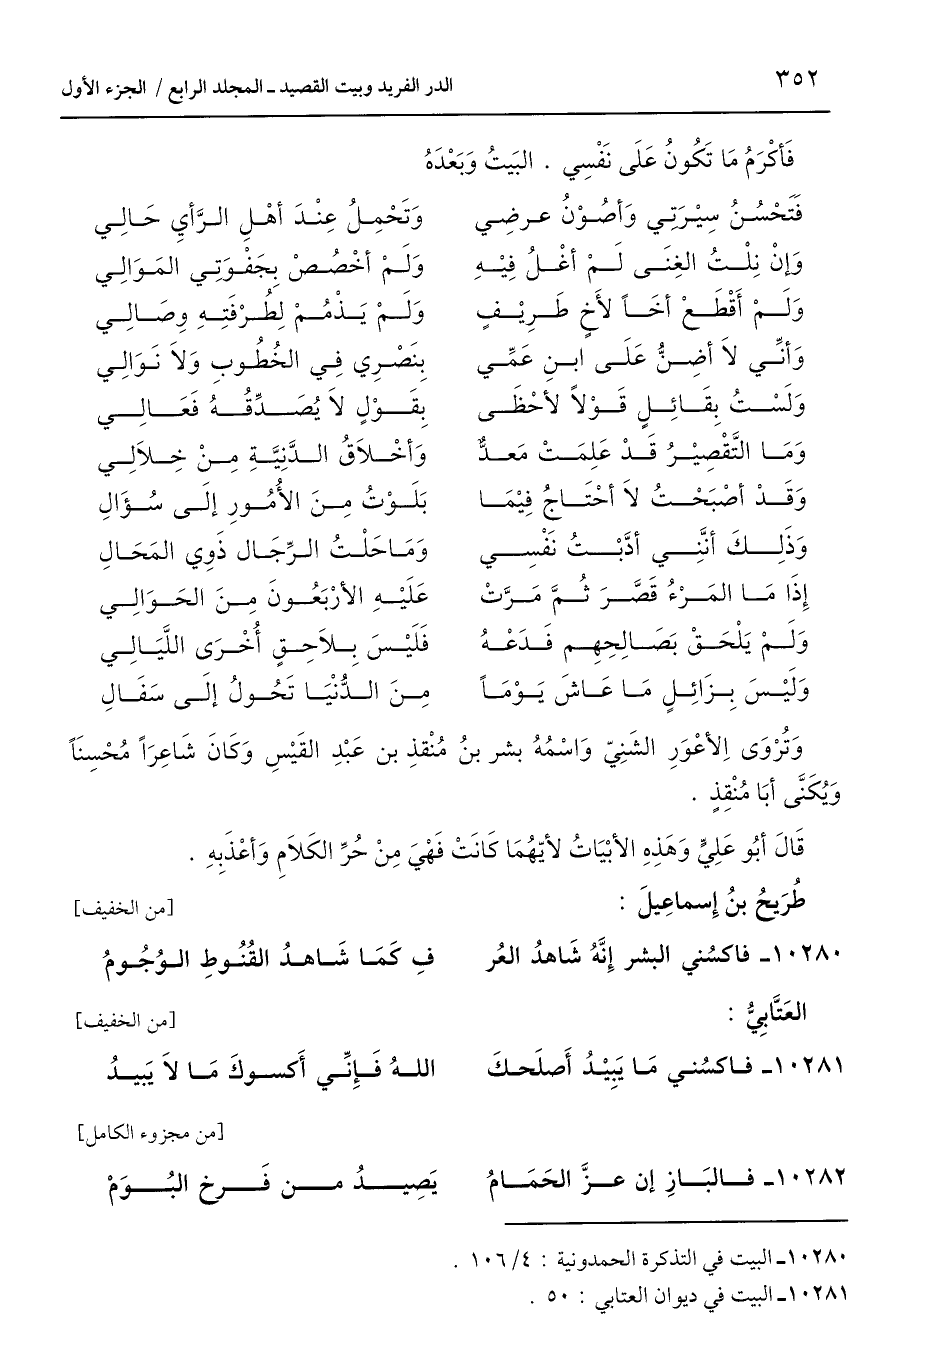 ٣٥٢ الدر الفريد وبيت القصيد ـ المجلد الرابع / الجزء الأول
فَأَكْرَمُ مَا تَكُونُ عَلَى نَفْسِي . البَيتُ وَبَعْدَهُ
فَتَحْسُنُ سِيْرَتِي وَأَصُوْنُ عرضِي وَتَحْمِلُ عِنْدَ أهْلِ الرَّأي حَالِي
وَإنْ نِلْتُ الغِنَى لَمْ أغْلُ فِيْهِ وَلَمْ أخْصُصْ بِجَفْوَتِي المَوَالِي
وَلَمْ أقْطَعْ أخَاً لأخٍ طَرِيْفٍ وَلَمْ يَذْمُمْ لِطُرْفَتِهِ وِصَالِي
وَأنِّي لاَ أضِنُّ عَلَى ابنِ عَمِّي بِنَصْرِي فِي الخُطُوبِ وَلاَ نَوَالِي
وَلَسْتُ بِقَائِلٍ قَوْلاً لأحْظَى بِقَوْلٍ لاَ يُصَدِّقُهُ فَعَالِي
وَمَا التَّقْصِيْرُ قَدْ عَلِمَتْ مَعَدٌّ وَأخْلاَقُ الدَّنِيَّةِ مِنْ خِلاَلِي
وَقَدْ أصْبَحْتُ لاَ أحْتَاجُ فِيْمَا بَلَوْتُ مِنَ الأُمُورِ إلَى سُؤَالِ
وَذَلِكَ أنَّنِي أدَّبْتُ نَفْسِي وَمَا حَلْتُ الرِّجَالَ ذَوِي المَحَالِ
إذَا مَا المَرْءُ قَصَّرَ ثُمَّ مَرَّتْ عَلَيْهِ الأرْبَعُونَ مِنَ الحَوَالِي
وَلَمْ يَلْحَقْ بِصَالِحِهِم فَدَعْهُ فَلَيْسَ بِلاَحِقٍ أُخْرَى اللَّيَالِي
وَلَيْسَ بِزَائِلٍ مَا عَاشَ يَوْمَاً مِنَ الدُّنْيَا تَحُولُ إلَى سَفَالِ
وَتُرْوَى لِلأعْوَرِ الشَّنِيِّ وَاسْمُهُ بِشرِ بنُ مُنْقذِ بن عَبْدِ القَيْسِ وَكَانَ شَاعِرَاً مُحْسِناً
وَيُكَنَّى أبَا مُنْقِذٍ .
قَالَ أَبُو عَلِيٍّ وَهَذِهِ الأبْيَاتُ لأيّهُمَا كَانَتْ فَهْيَ مِنْ حُرِّ الكَلاَمِ وَأعْذَبِهِ .
طُرَيحُ بنُ إسماعِيلَ : [من الخفيف]
١٠٢٨٠ـ فاكسُني البشر إنَّهُ شَاهدُ العُر فِ كَمَا شَاهدُ القُنُوطِ الوُجُومُ
العَتَّابِيُّ : [من الخفيف]
١٠٢٨١ـ فاكسُني مَا يَبِيْدُ أصلَحكَ اللهُ فَإنِّي أكسوكَ مَا لاَ يَبِيدُ
[من مجزوء الكامل]
١٠٢٨٢ـ فالبَازِ إن عزَّ الحَمَامُ يَصِيدُ من فَرخِ البُوَمْ
١٠٢٨٠ـ البيت في التذكرة الحمدونية : ٤/ ١٠٦ .
١٠٢٨١ـ البيت في ديوان العتابي : ٥٠ .